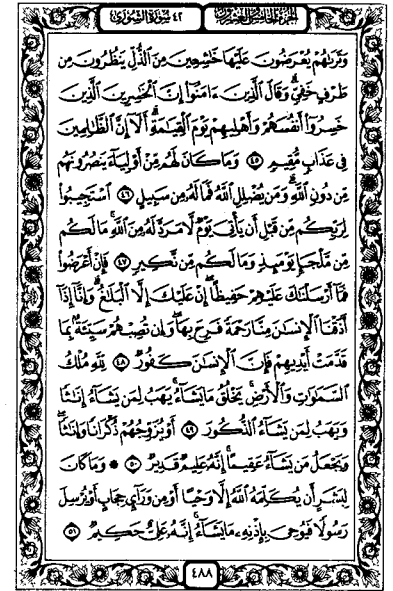 الجزء الخامس والعشرون ٤٢ سورة الشورى
وَتَرَىٰهُمْ يُعْرَضُونَ عَلَيْهَا خَٰشِعِينَ مِنَ ٱلذُّلِّ يَنظُرُونَ مِن
طَرْفٍ خَفِيٍّ وَقَالَ ٱلَّذِينَ ءَامَنُوٓا۟ إِنَّ ٱلْخَٰسِرِينَ ٱلَّذِينَ
خَسِرُوٓا۟ أَنفُسَهُمْ وَأَهْلِيهِمْ يَوْمَ ٱلْقِيَٰمَةِ أَلَآ إِنَّ ٱلظَّٰلِمِينَ
فِى عَذَابٍ مُّقِيمٍ ٤٥ وَمَا كَانَ لَهُم مِّنْ أَوْلِيَآءَ يَنصُرُونَهُم
مِّن دُونِ ٱللَّهِ وَمَن يُضْلِلِ ٱللَّهُ فَمَا لَهُۥ مِن سَبِيلٍ ٤٦ ٱسْتَجِيبُوا۟
لِرَبِّكُم مِّن قَبْلِ أَن يَأْتِىَ يَوْمٌ لَّا مَرَدَّ لَهُۥ مِنَ ٱللَّهِ مَا لَكُم
مِّن مَّلْجَإٍ يَوْمَئِذٍ وَمَا لَكُم مِّن نَّكِيرٍ ٤٧ فَإِنْ أَعْرَضُوا۟
فَمَآ أَرْسَلْنَٰكَ عَلَيْهِمْ حَفِيظًا إِنْ عَلَيْكَ إِلَّا ٱلْبَلَٰغُ وَإِنَّآ إِذَآ
أَذَقْنَا ٱلْإِنسَٰنَ مِنَّا رَحْمَةً فَرِحَ بِهَا وَإِن تُصِبْهُمْ سَيِّئَةٌۢ بِمَا
قَدَّمَتْ أَيْدِيهِمْ فَإِنَّ ٱلْإِنسَٰنَ كَفُورٌ ٤٨ لِّلَّهِ مُلْكُ
ٱلسَّمَٰوَٰتِ وَٱلْأَرْضِ يَخْلُقُ مَا يَشَآءُ يَهَبُ لِمَن يَشَآءُ إِنَٰثًا
وَيَهَبُ لِمَن يَشَآءُ ٱلذُّكُورَ ٤٩ أَوْ يُزَوِّجُهُمْ ذُكْرَانًا وَإِنَٰثًا
وَيَجْعَلُ مَن يَشَآءُ عَقِيمًا إِنَّهُۥ عَلِيمٌ قَدِيرٌ ٥٠ ۞ وَمَا كَانَ
لِبَشَرٍ أَن يُكَلِّمَهُ ٱللَّهُ إِلَّا وَحْيًا أَوْ مِن وَرَآئِ حِجَابٍ أَوْ يُرْسِلَ
رَسُولًا فَيُوحِىَ بِإِذْنِهِۦ مَا يَشَآءُ إِنَّهُۥ عَلِىٌّ حَكِيمٌ ٥١
٤٨٨